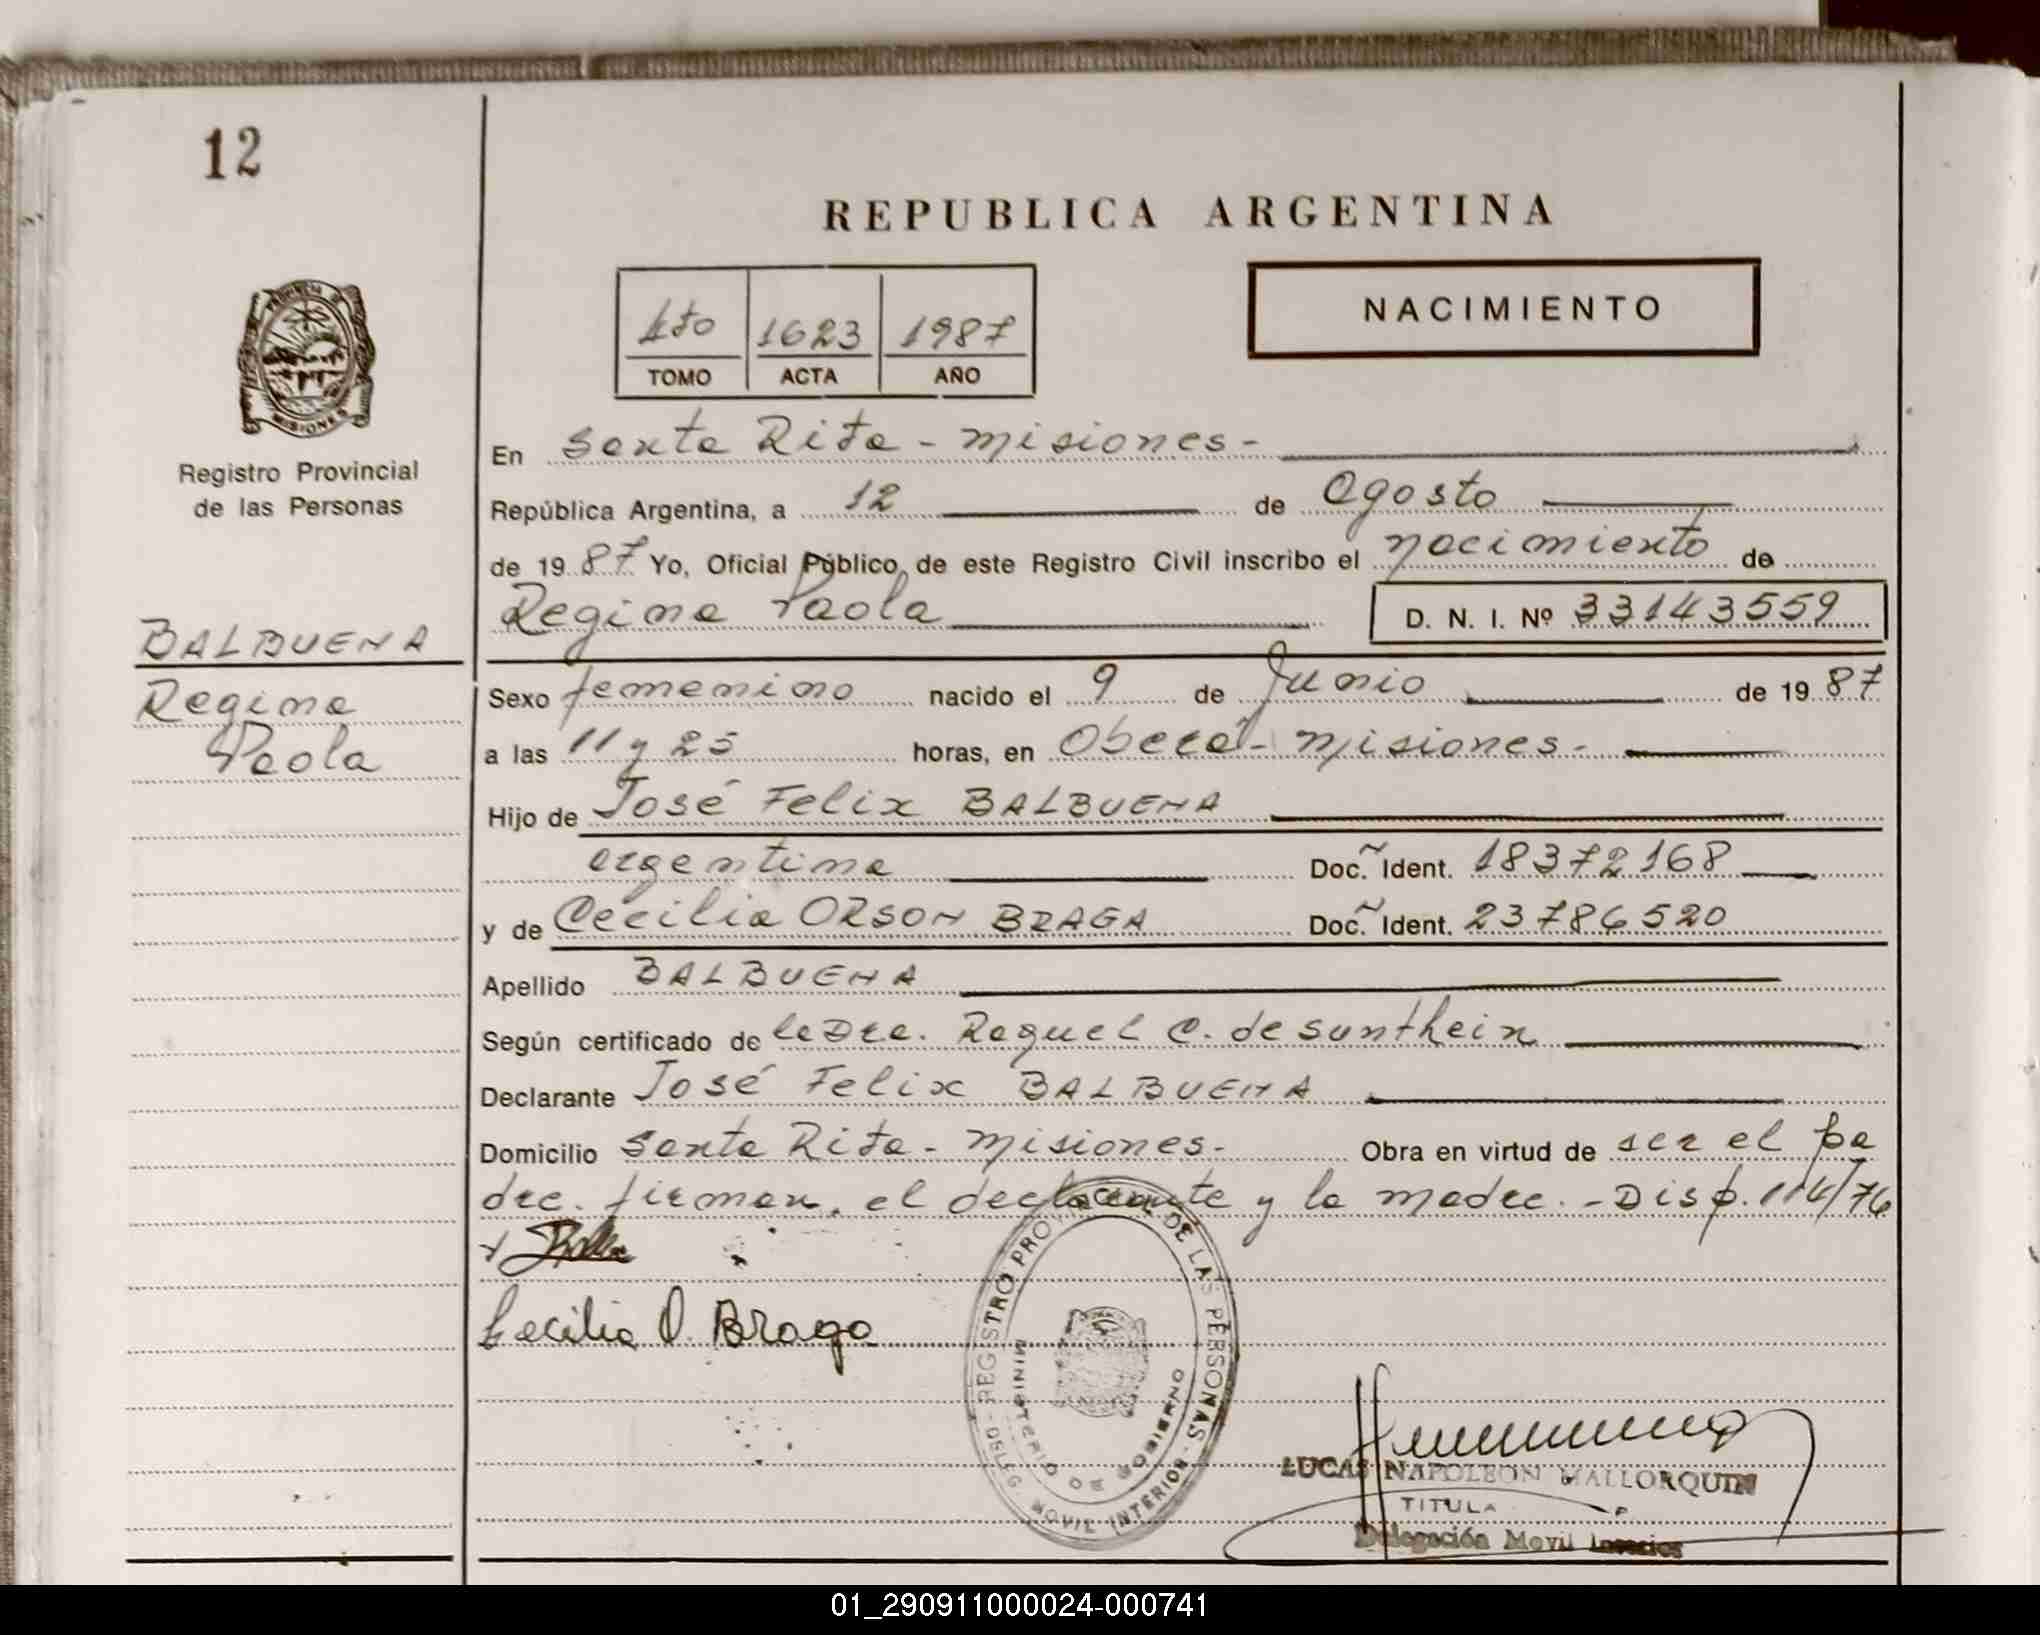 12
REPUBLICA ARGENTINA
4to 1623 1987
TOMO ACTA AÑO
NACIMIENTO
PROVINCIA DE
MISIONES
Registro Provincial
de las Personas
BALBUENA
Regina
Paola
En Santa Rita - Misiones -
República Argentina, a 12 de Agosto
de 1987 Yo, Oficial Público de este Registro Civil inscribo el nacimiento de
Regina Paola D. N. I. Nº 33143559
Sexo femenino nacido el 9 de Junio de 1987
a las 11 y 25 horas, en Oberá - Misiones -
Hijo de José Felix BALBUENA
argentina Doc. Ident. 18372168
y de Cecilia ORSON BRAGA Doc. Ident. 23786520
Apellido BALBUENA
Según certificado de la Dra. Raquel C. de Sunthein
Declarante José Felix BALBUENA
Domicilio Santa Rita - Misiones - Obra en virtud de ser el pa
dre. firman, el declarante y la madre. - Disp. 114/76
Cecilia O. Braga
REGISTRO PROVINCIAL DE LAS PERSONAS - DELEG. MOVIL INTERIOR
MINISTERIO DE GOBIERNO
LUCAS NAPOLEON MALLORQUIN
TITULA
Delegación Movil Interior
01_290911000024-000741